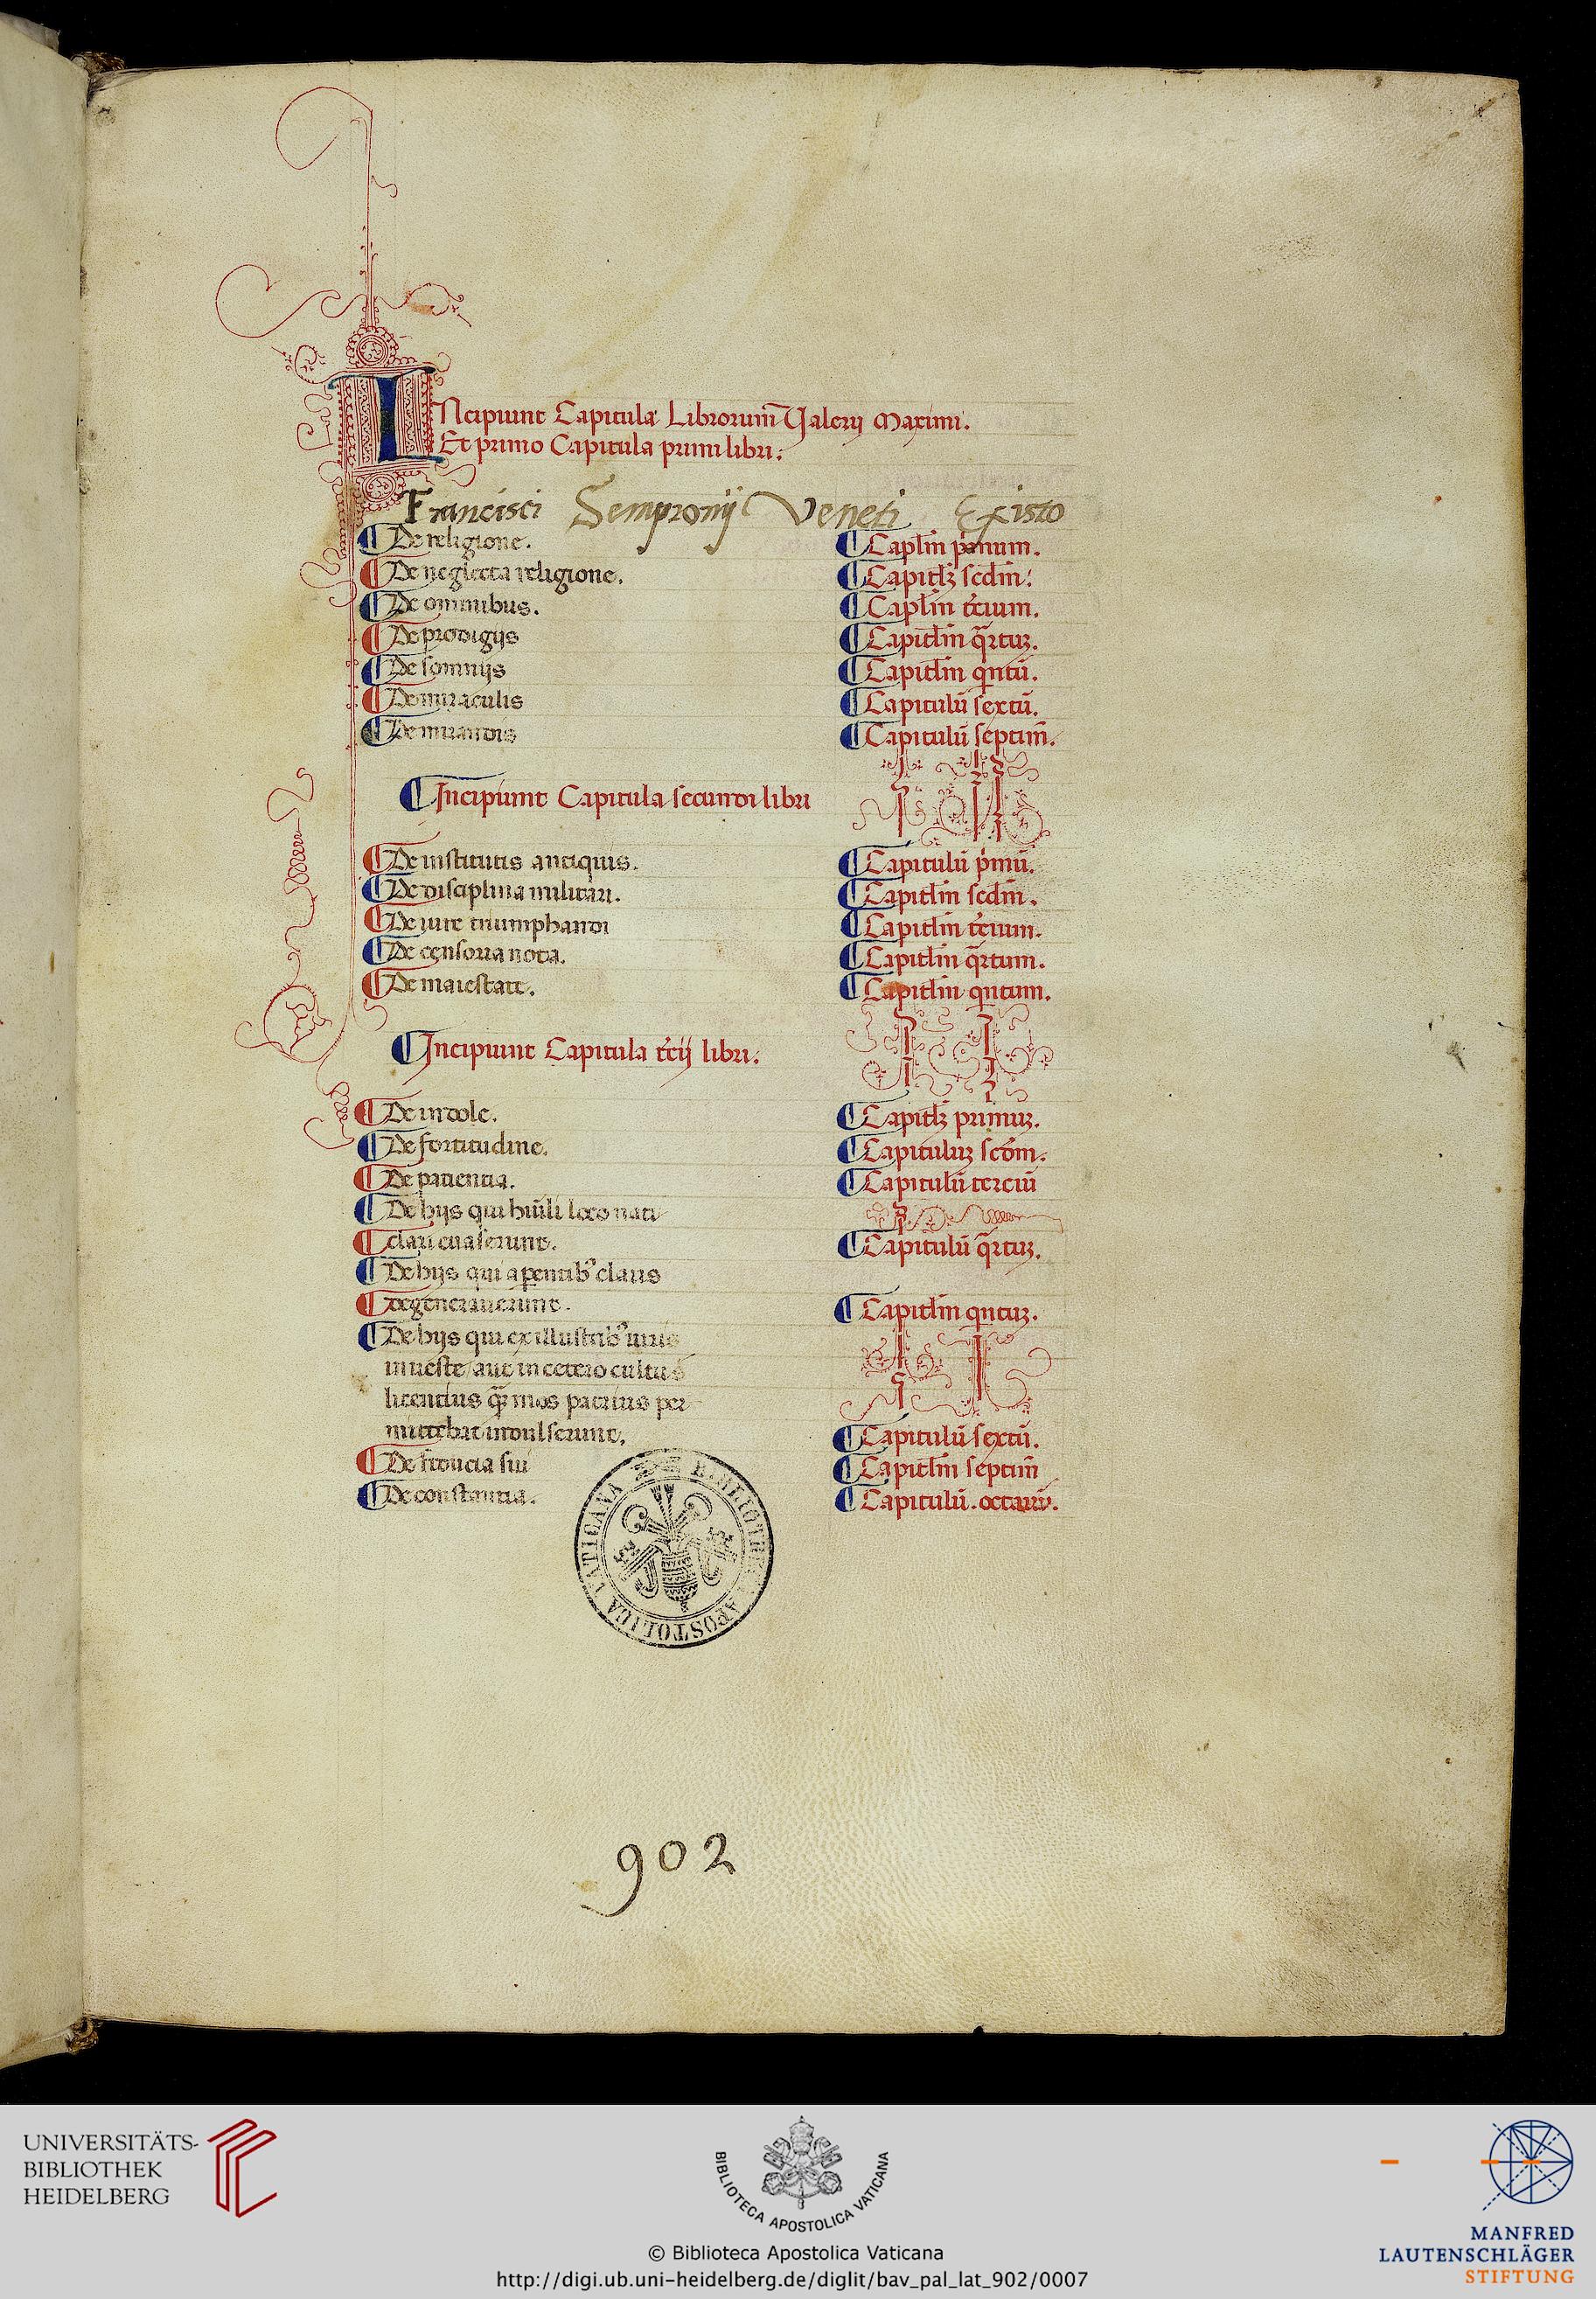 INcipiunt Capitula Librorum̅ Valerij Maximi.
Et primo Capitula primi libri:
Francisci Sempronij Veneti Existo
¶ De religione. ¶ Capl̅m primum.
¶ De neglecta religione. ¶ Capitlꝫ scdm̅:
¶ De ominibus. ¶ Capl̅m t̅cium.
¶ De prodigijs ¶ Capitl̅m qͣrtuꝫ.
¶ De somnijs ¶ Capitl̅m qntu̅.
¶ De miraculis ¶ Capitulu̅ sextu̅.
¶ De mirandis ¶ Capitulu̅ septim̅.
¶ Incipiunt Capitula secundi libri
¶ De institutis antiquis. ¶ Capitulu̅ pͥmu̅.
¶ De disciplina militari. ¶ Capitl̅m scdm̅.
¶ De iure triumphandi ¶ Capitl̅m t̅cium.
¶ De censoria nota. ¶ Capitl̅m qͣrtum.
¶ De maiestate. ¶ Capitl̅m qntum.
¶ Incipiunt Capitula t̅cij libri:
¶ De indole. ¶ Capitlꝫ primuꝫ.
¶ De fortitudine. ¶ Capituluꝫ scd̅m.
¶ De patientia. ¶ Capitulu̅ terciu̅
¶ De hijs qui hu̅ili loco nati
¶ clari euaserunt. ¶ Capitulu̅ qͣrtuꝫ.
¶ De hijs qui a pentib᾿ claris
¶ degenerauerunt. ¶ Capitl̅m qntuꝫ.
¶ De hijs qui ex illustrib᾿ uiris
in ueste aut in cetero cultu
licentius qͣꝫ mos patrius per
mittebat indulserunt. ¶ Capitulu̅ sextu̅.
¶ De fiducia sui ¶ Capitl̅m septim̅
¶ De constantia. ¶ Capitulu̅. octauu̅.
BIBLIOTHECA APOSTOLICA VATICANA
902
UNIVERSITÄTS-
BIBLIOTHEK
HEIDELBERG
BIBLIOTECA APOSTOLICA VATICANA
© Biblioteca Apostolica Vaticana
http://digi.ub.uni-heidelberg.de/diglit/bav_pal_lat_902/0007
MANFRED
LAUTENSCHLÄGER
STIFTUNG